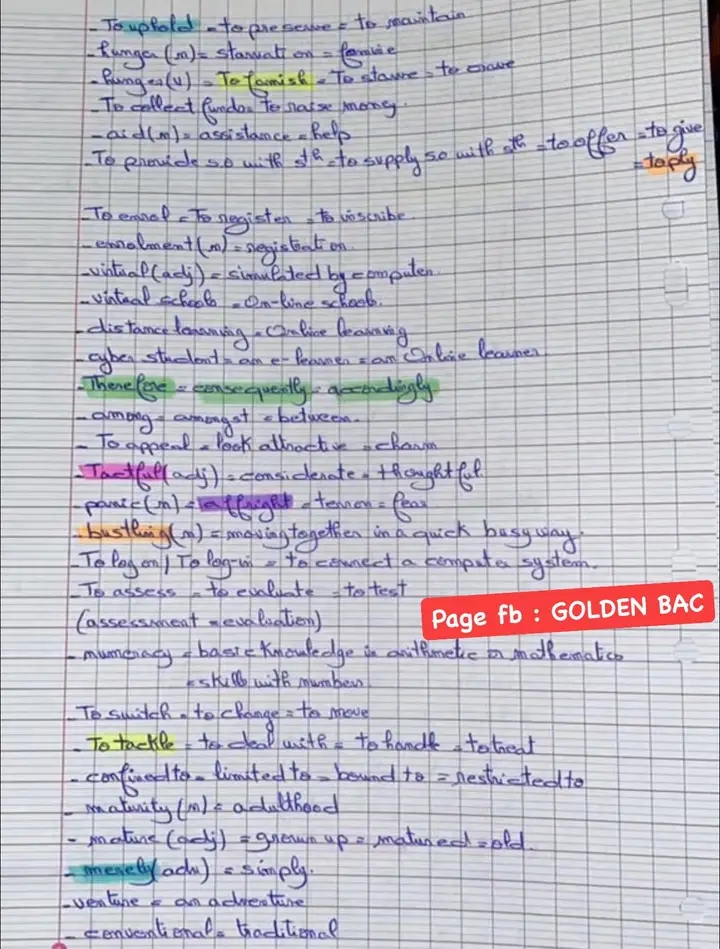 - To uphold = to preserve = to maintain
- hunger (n) = starvation = famine
- hunger (v) = To famish = To starve = to crave
- To collect funds = To raise money.
- aid (n) = assistance = help
- To provide so with sth = to supply so with sth = to offer = to give
= to ply
- To enrol = To register = to inscribe
- enrolment (n) = registration
- virtual (adj) = simulated by computer.
- virtual schools = On-line schools.
- distance learning = Online learning
- cyber student = an e-learner = an Online learner
- Therefore = consequently = accordingly
- among = amongst = between.
- To appeal = look attractive = charm
- Tactful (adj) = considerate = thoughtful.
- panic (n) = affright = terror = fear
- bustling (n) = moving together in a quick busy way.
- To log on / To log-in = to connect a computer system.
- To assess = to evaluate = to test
(assessment = evaluation)
Page fb : GOLDEN BAC
- numeracy = basic knowledge in arithmetic or mathematics
= skills with numbers.
- To switch = to change = to move
- To tackle = to deal with = to handle = to treat
- confined to = limited to = bound to = restricted to
- maturity (n) = adulthood
- mature (adj) = grown up = matured = old.
- merely (adv) = simply.
- venture = an adventure
- conventional = traditional